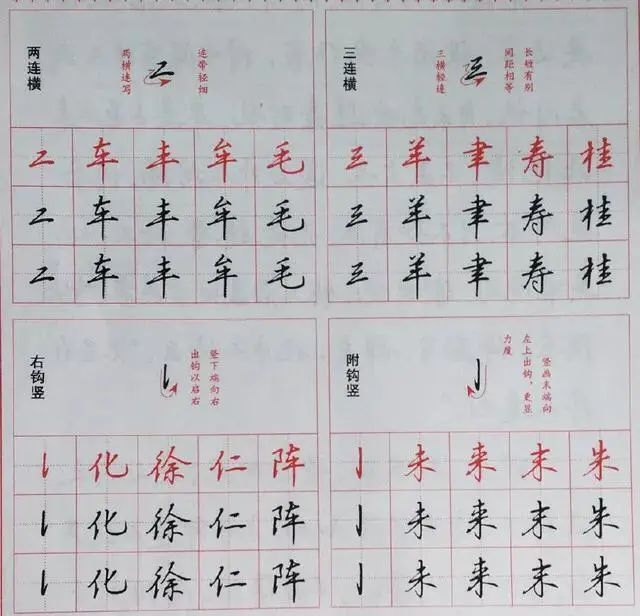 两连横
两横连写
连带轻细
二 车 丰 牟 毛
二 车 丰 牟 毛
二 车 丰 牟 毛
三连横
三横轻连
间距相等
长短有别
三 羊 聿 寿 桂
三 羊 聿 寿 桂
三 羊 聿 寿 桂
右钩竖
出钩以启右
竖下端向右
化 徐 仁 阵
化 徐 仁 阵
化 徐 仁 阵
附钩竖
竖画末端向
左上出钩，更显
力度
未 来 末 朱
未 来 末 朱
未 来 末 朱